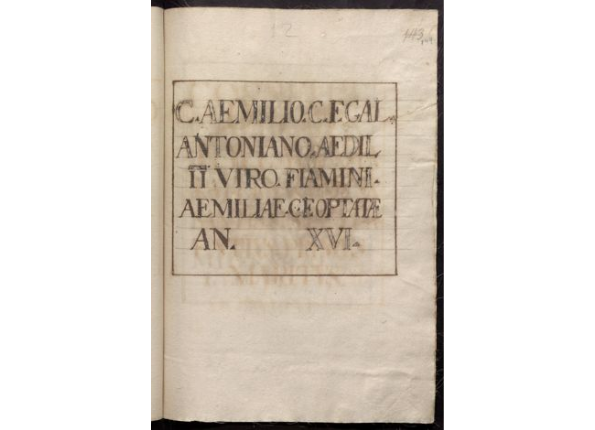 C. AEMILIO. C. F. GAL.
ANTONIANO. AEDIL
II VIRO. FIAMINI.
AEMILIAE. C. F. OPTATÆ
AN. XVI.